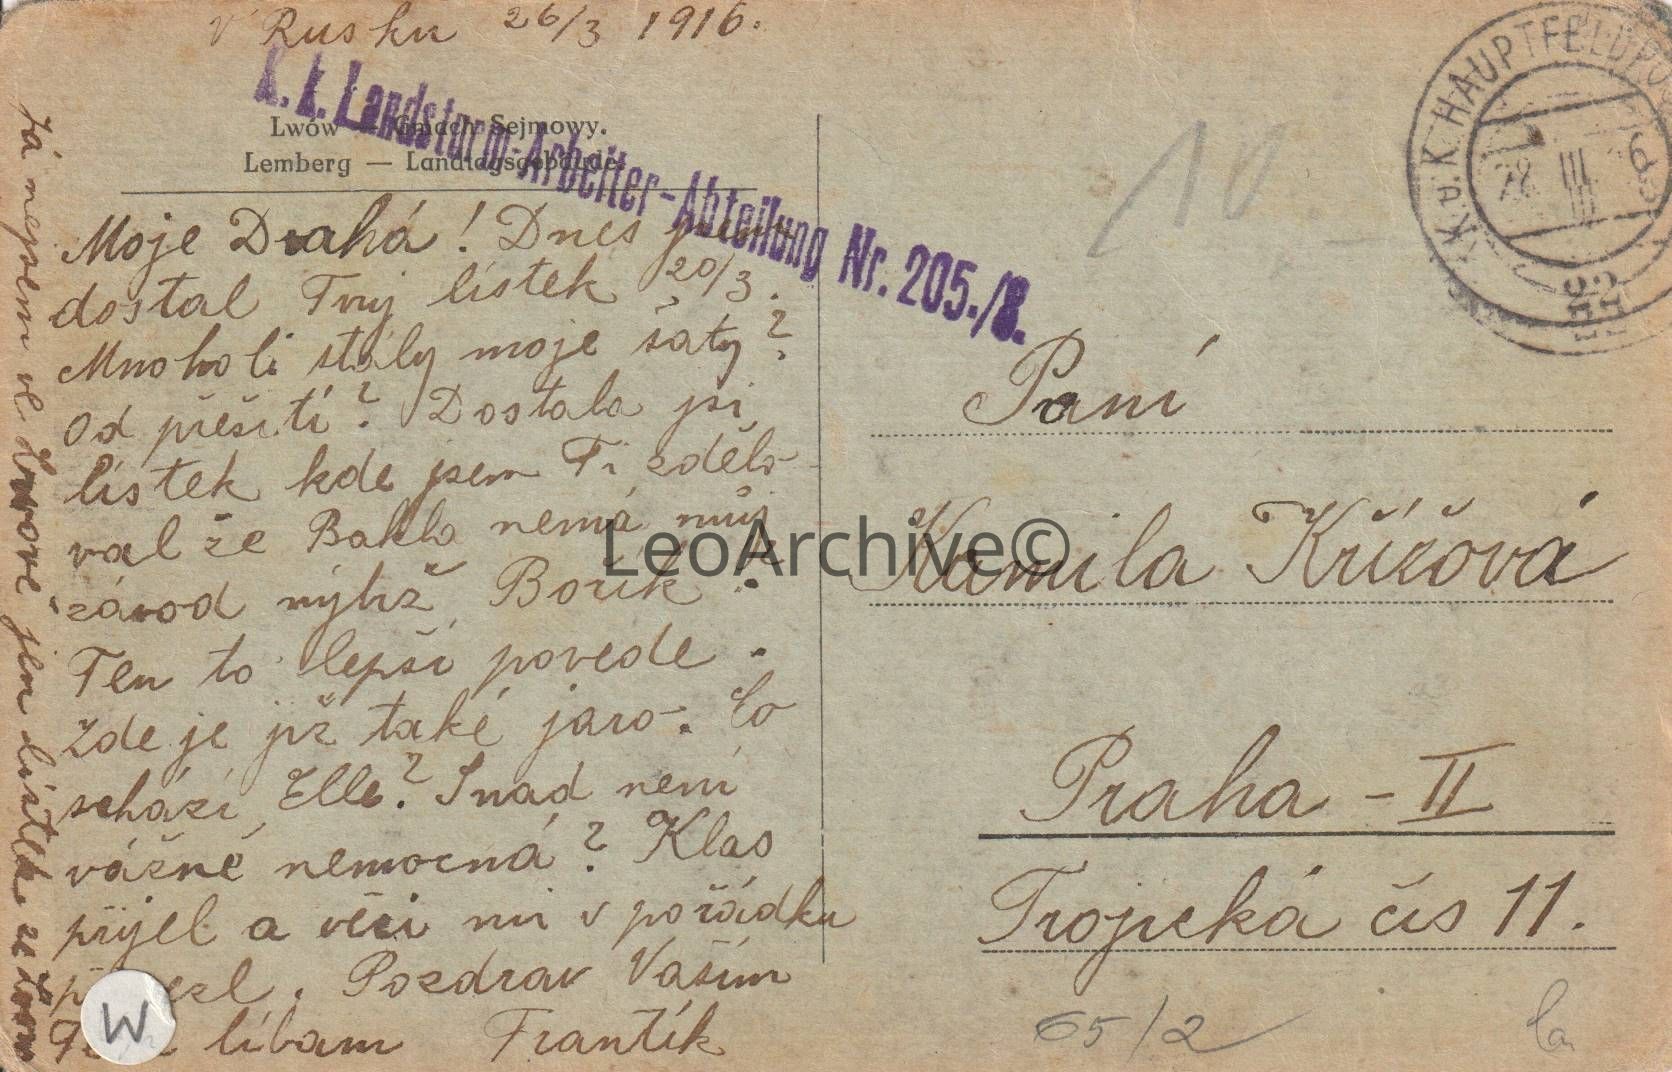 V Rusku 26/3 1916.
K. k. Landsturm-Arbeiter-Abteilung Nr. 205./8.
Lwów — Gmach Sejmowy.
Lemberg — Landtagsgebäude.
Moje Drahá! Dnes jsem
dostal Tvůj lístek 20/3.
Mnoho li stály moje šaty?
Od přešití? Dostala jsi
lístek kde jsem Ti zdělo-
val že Bakla nemá můj
závod nýbrž Bořík.
Ten to lepší povede.
Zde je již také jaro. Co
schází Elle? Snad není
vážně nemocná? Klas
přijel a věci mi v pořádku
Pozdrav Vašim
líbám Frantík
Já nejsem ve Lvově jen lístek ze Lvova
K.u.K. HAUPTFELDPOS
28 III
22
10
Paní
Kamila Křížová
Praha - II
Trojická čís 11.
65/2
W
LeoArchive©